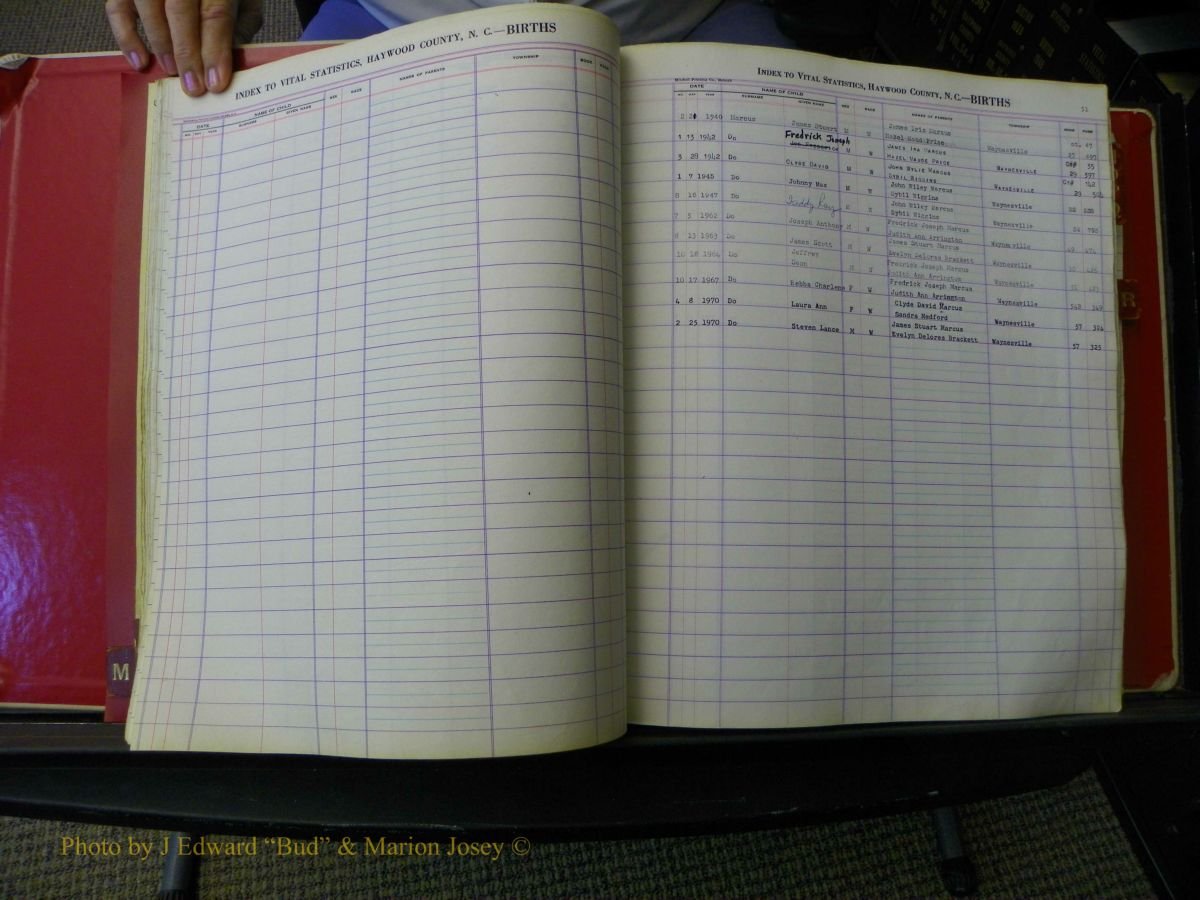 INDEX TO VITAL STATISTICS, HAYWOOD COUNTY, N. C.—BIRTHS
DATE NAME OF CHILD SEX RACE NAME OF PARENTS TOWNSHIP BOOK PAGE
NO. DAY YEAR SURNAME GIVEN NAME
M
INDEX TO VITAL STATISTICS, HAYWOOD COUNTY, N. C.—BIRTHS
52
DATE NAME OF CHILD SEX RACE NAME OF PARENTS TOWNSHIP BOOK PAGE
NO. DAY YEAR SURNAME GIVEN NAME
1940 Marcus James Stuart M W James Iris Marcus
Hazel Price Waynesville
1 13 1942 Do Fredrick Joseph M W JAMES IRA MARCUS
HAZEL VANCE PRICE WAYNESVILLE
3 28 1942 Do CLYDE DAVID M W JOHN WYLIE MARCUS 29 397
SYBIL WIGGINS WAYNESVILLE
1 7 1945 Do Johnny Max M W John Wiley Marcus
Sybil Wiggins Waynesville
8 16 1947 Do Freddy Ray M W John Wiley Marcus
Sybil Wiggins Waynesville
7 3 1962 Do Joseph Anthony M W Fredrick Joseph Marcus
Judith Ann Arrington Waynesville
8 13 1963 Do James Scott M W James Stuart Marcus
Evelyn Delores Brackett Waynesville
10 18 1964 Do Jeffrey M W Fredrick Joseph Marcus
Dean Judith Ann Arrington
10 17 1967 Do Rebba Charlene F W Fredrick Joseph Marcus
Judith Ann Arrington Waynesville 54B 349
4 8 1970 Do Laura Ann F W Clyde David Marcus
Sandra Medford Waynesville 57 324
2 25 1970 Do Steven Lance M W James Stuart Marcus
Evelyn Delores Brackett Waynesville 57 325
Photo by J Edward “Bud” & Marion Josey ©